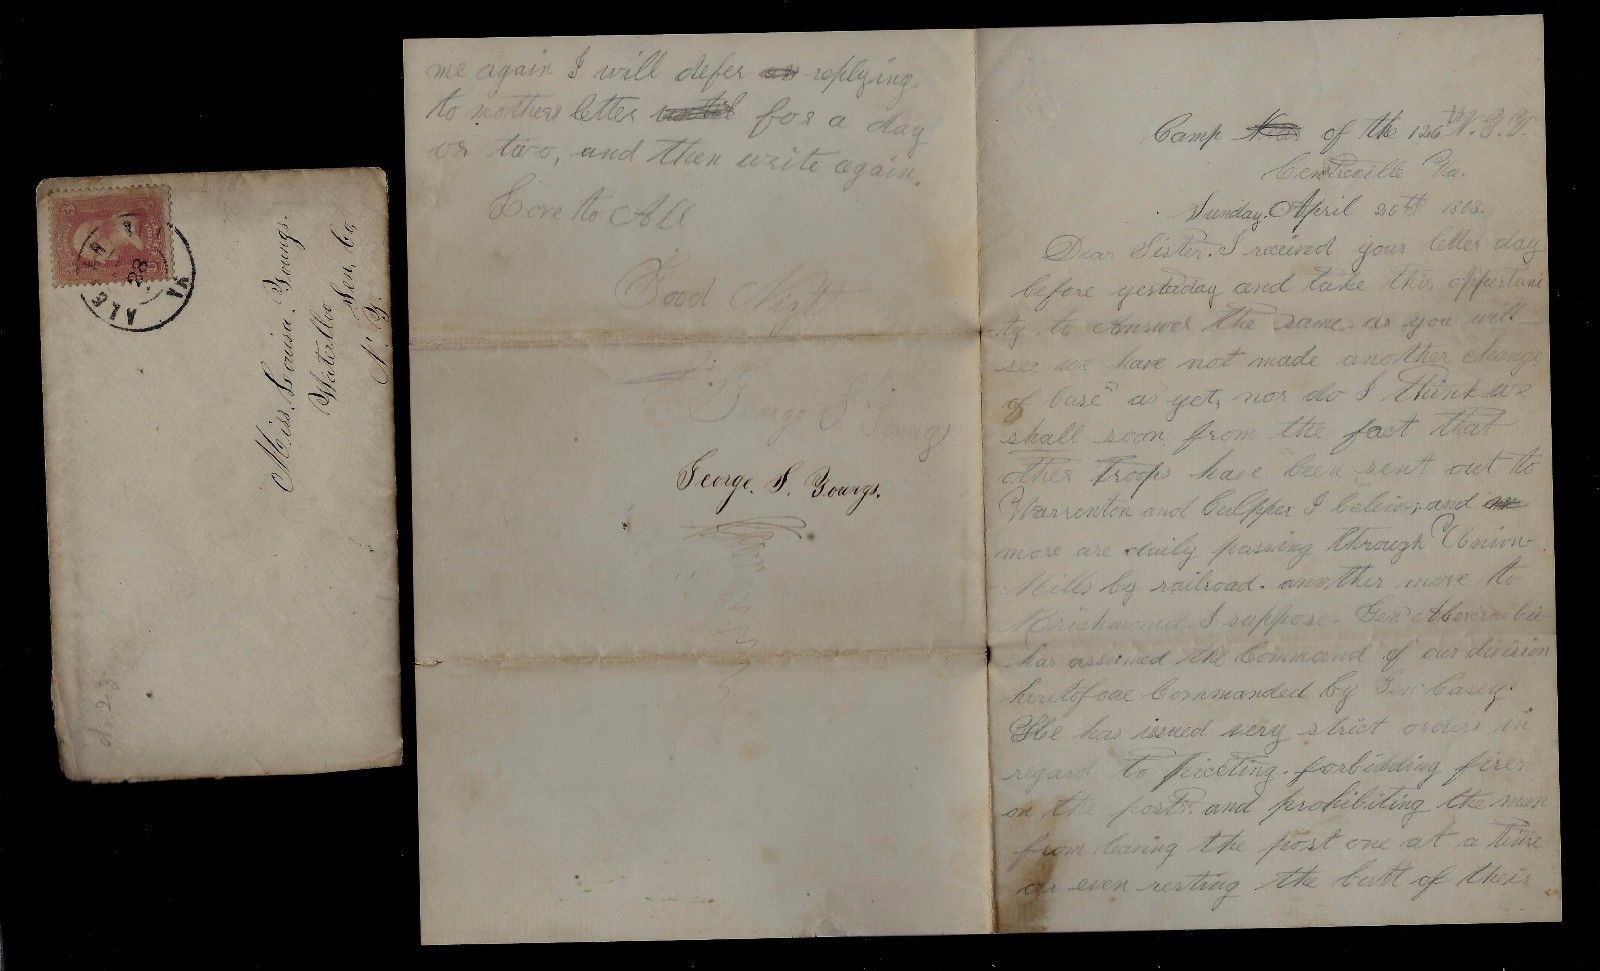 Miss. Louisa. Youngs.
Waterloo
Sen. Co
N. Y.
ALE VA
28
me again I will defer replying
to mothers letter until for a day
or two, and then write again.
Love to All
Good Night
George S. Youngs
George. S. Youngs.
Camp Near of the 126th N. Y. V.
Centreville Va.
Sunday. April 26th 1863.
Dear Sister. I received your letter day
before yesterday and take this opportuni
ty to Answer the same. as you will
see we have not made another change
of base" as yet, nor do I think we
shall soon from the fact that
other troops have been sent out to
Warrenton and Culpper I beleive, and
more are daily passing through Union
Mills by railroad. another move to
Richmond I suppose. Gen Abercrombie
has assumed the Command of our division
heretofore Commanded by Gen Casey.
He has issued very strict orders in
regard to piceting. forbidding fires
on the posts and prohibiting the men
from leaving the post one at a time
or even resting the butt of their